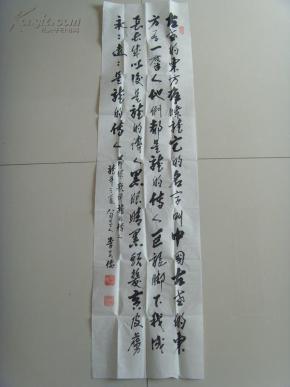 古老的東方有條龍它的名字叫中國古老的東
方有一群人他們都是龍的傳人巨龍脚下我成
長長成以後是龍的傳人黑眼睛黑頭髮黃皮膚
永々遠々是龍的傳人
龍的傳人